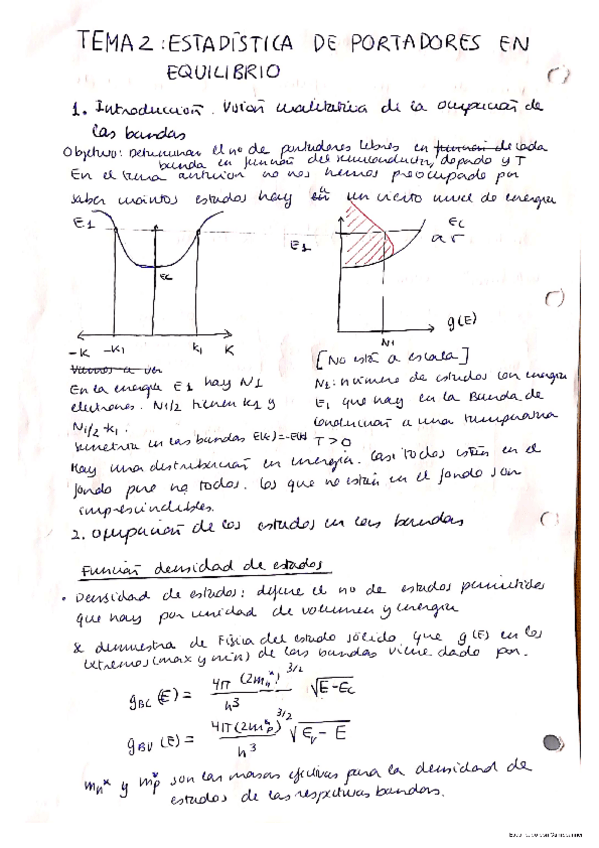 TEMA 2: ESTADÍSTICA DE PORTADORES EN
EQUILIBRIO
1. Introducción. Visión cualitativa de la ocupación de
las bandas
Objetivo: Determinar el no de portadores libres en función de cada
banda en función del semiconductor, dopado y T
En el tema anterior no nos hemos preocupado por
saber cuántos estados hay en un cierto nivel de energía
E1
Ec
-K -K1 K1 K
E1
Ec
g(E)
N1
[No está a escala]
Vamos a ver
En la energía E1 hay N1
electrones. N1/2 tienen K1 y
N1/2 -K1.
Simetría en las bandas
N1: número de estados con energía
E1 que hay en la Banda de
conducción a una temperatura
T > 0
Hay una distribución en energía. Casi todos están en el
fondo pero no todos. Los que no están en el fondo son
imprescindibles.
2. Ocupación de los estados en las bandas
Función densidad de estados
• Densidad de estados: define el no de estados permitidos
que hay por unidad de volumen y energía
Se demuestra de Física del estado sólido que g(E) en los
extremos (max y min) de las bandas viene dado por:
gBC (E) = 4π (2mn*)^3/2 / h^3 √E-Ec
gBV (E) = 4π (2mp*)^3/2 / h^3 √Ev - E
mn* y mp* son las masas efectivas para la densidad de
estados de las respectivas bandas.